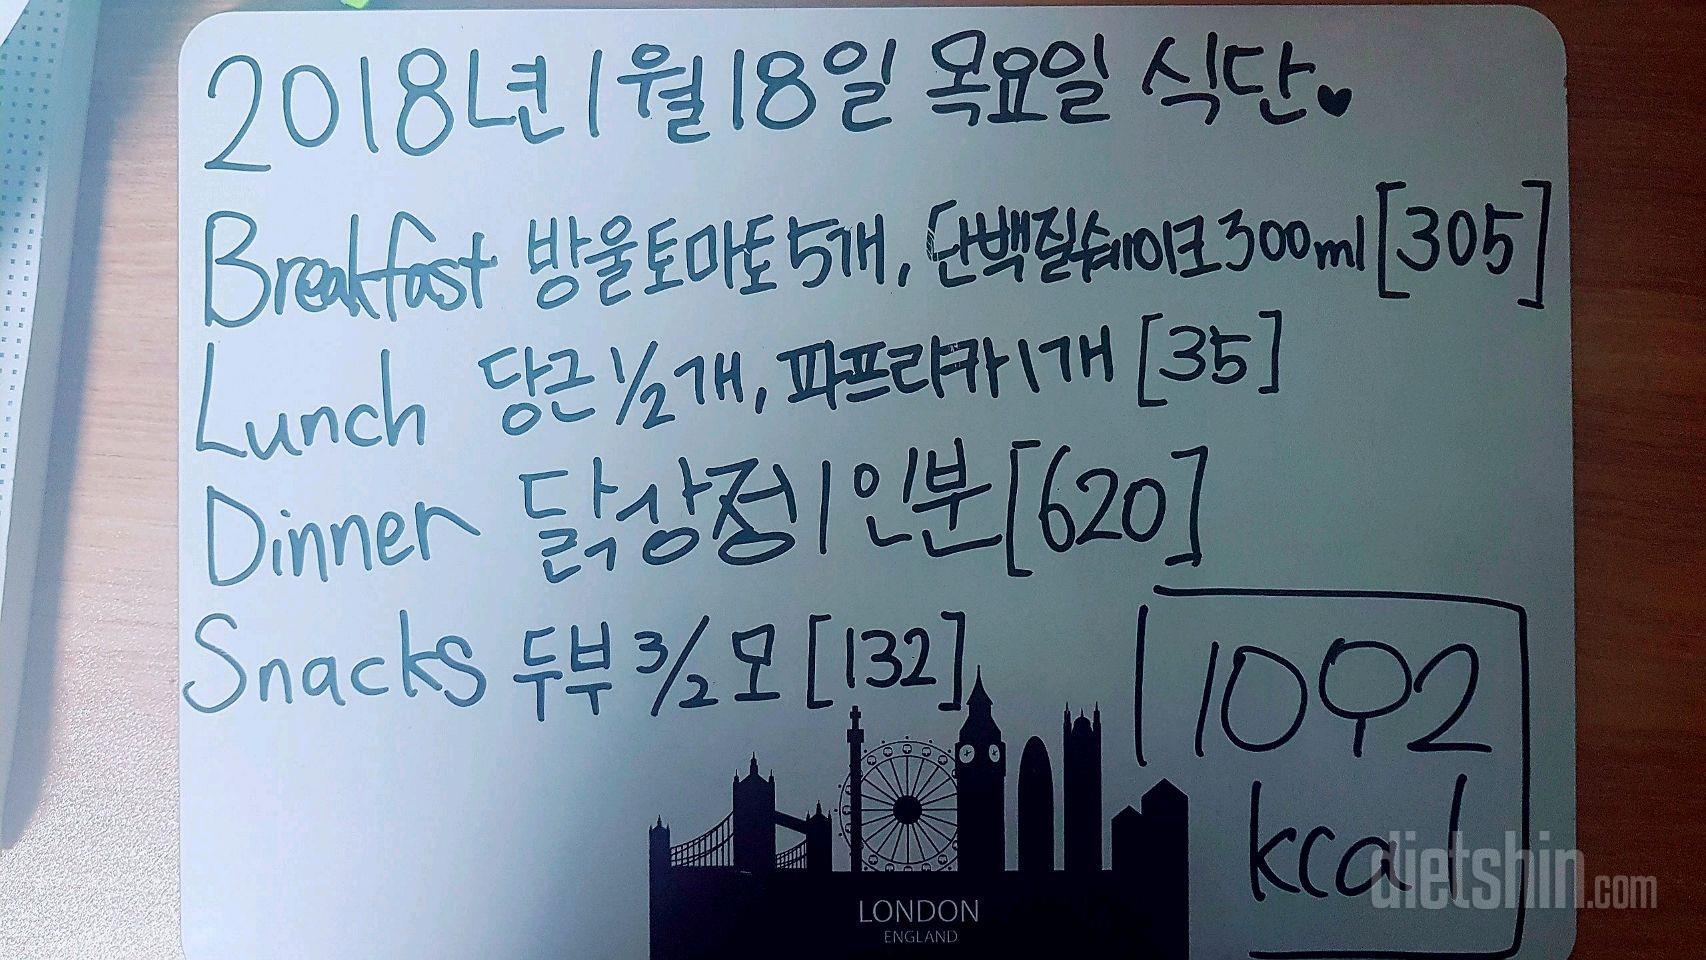 2018년 1월 18일 목요일 식단♥
Breakfast 방울토마토5개, 단백질쉐이크300ml [305]
Lunch 당근 1/2개, 파프리카 1개 [35]
Dinner 닭강정 1인분 [620]
Snacks 두부 3/2모 [132]
1092
kcal
LONDON
ENGLAND
dietshin.com